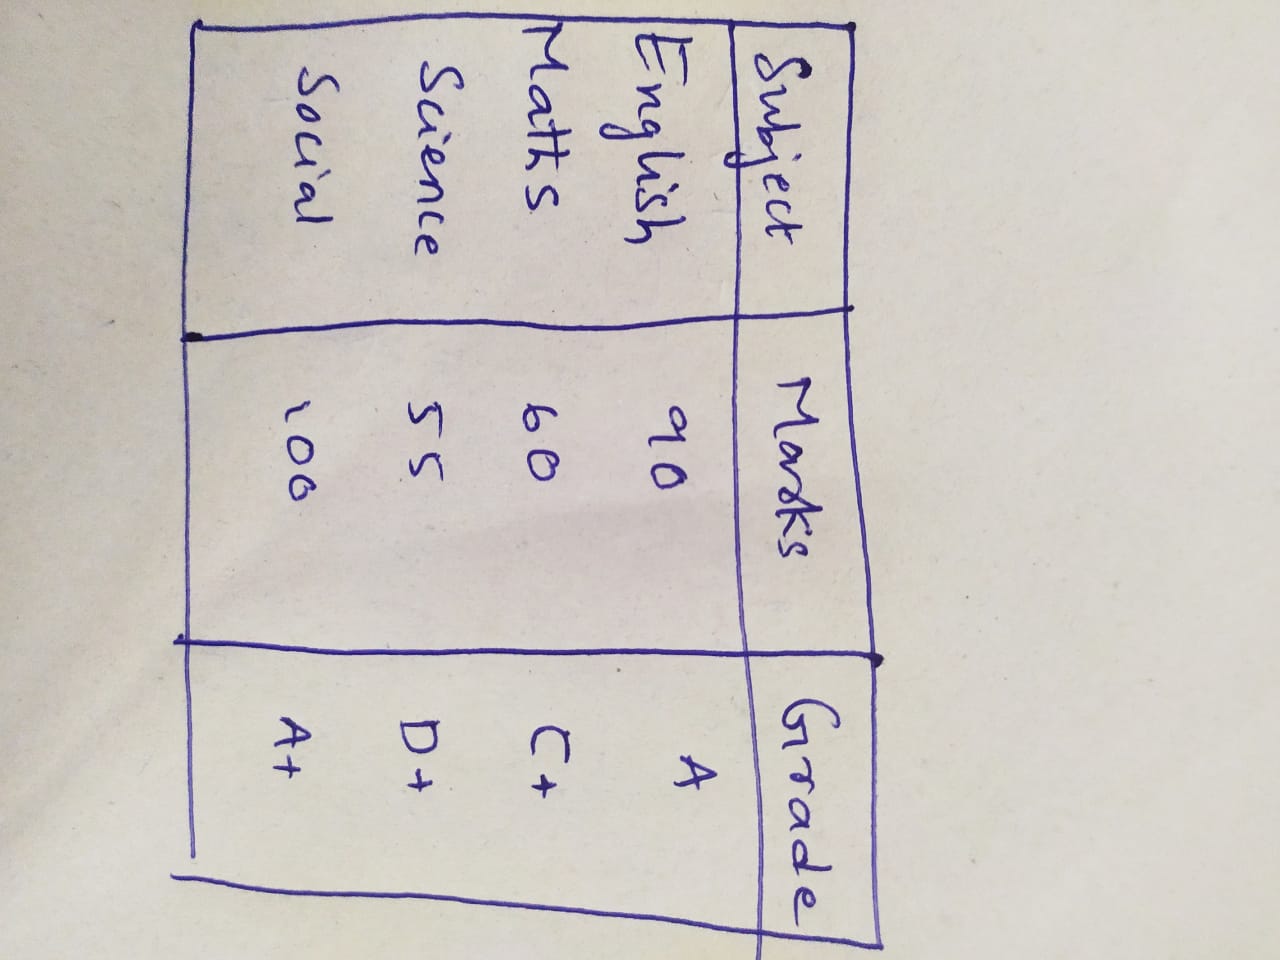 Subject Marks Grade
English 90 A
Maths 60 C+
Science 55 D+
Social 100 A+